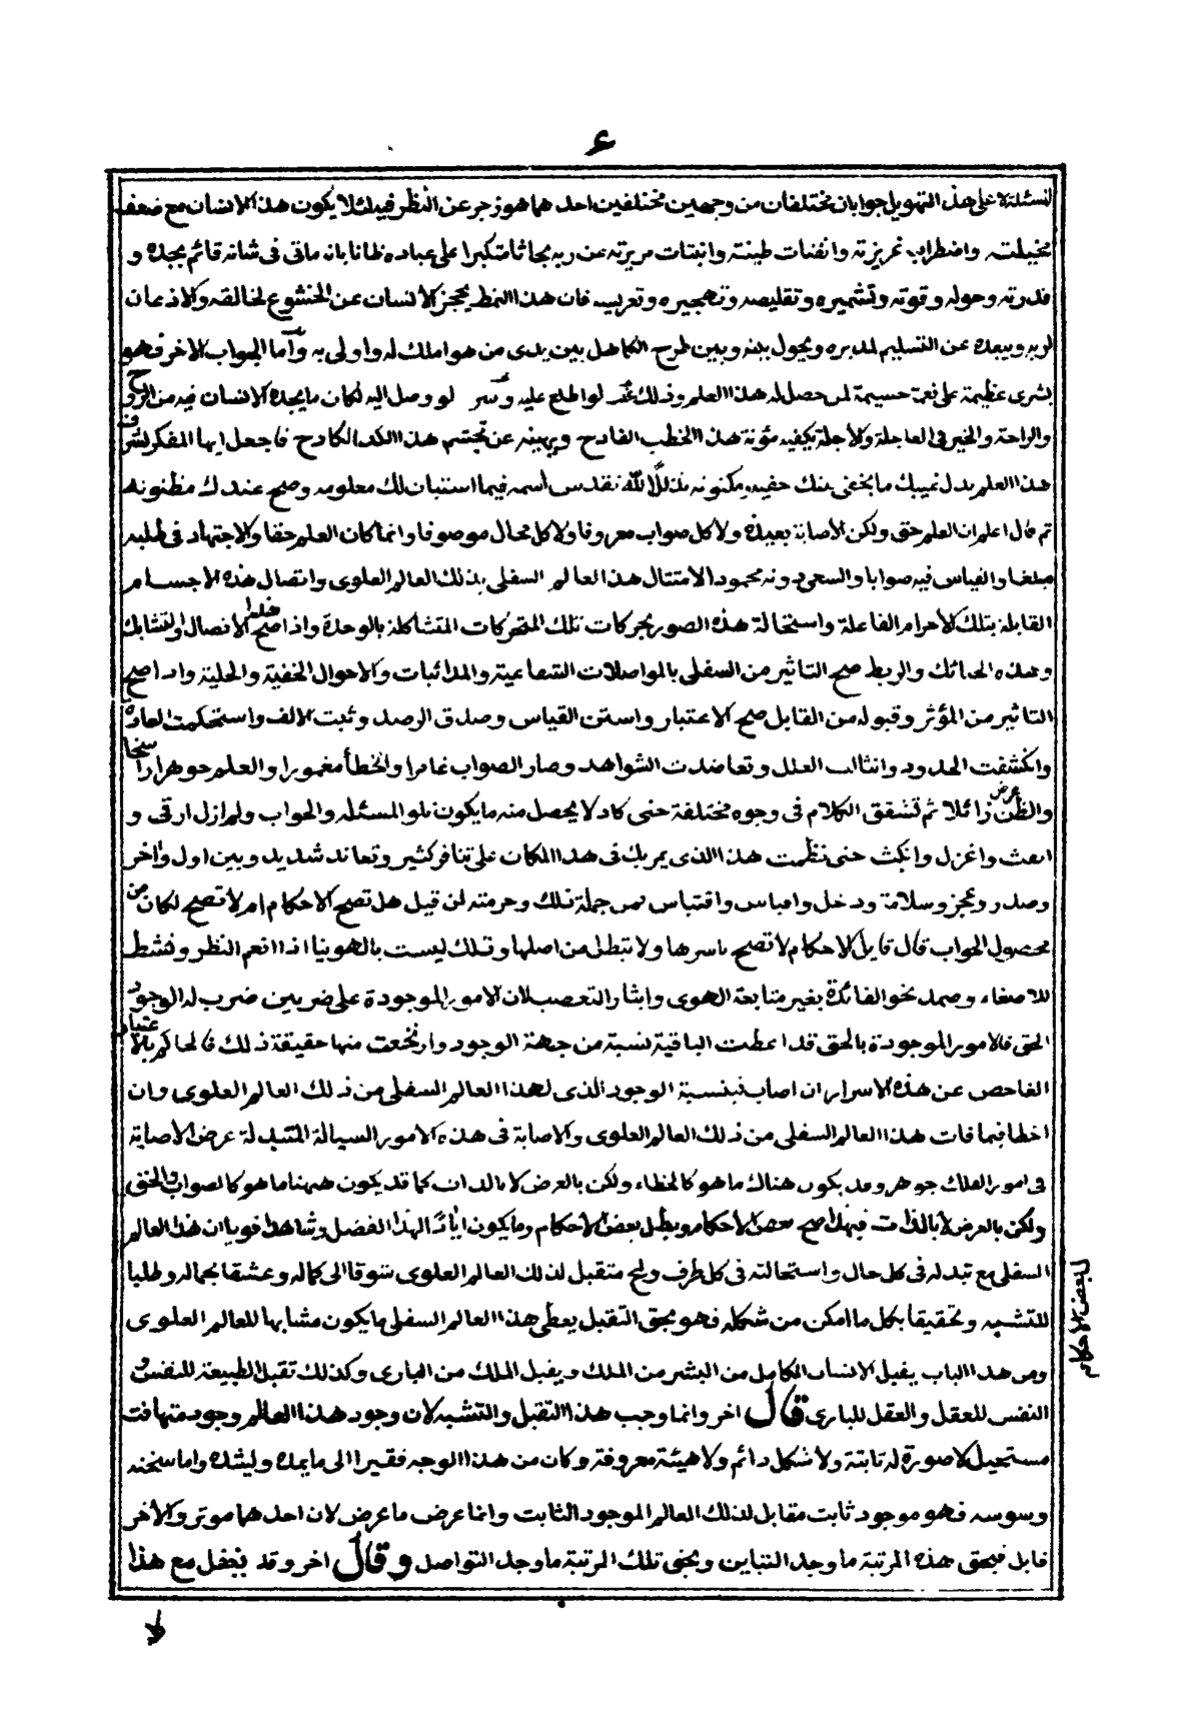 ع
لنسئلة لا على هذا التهويل جوابان مختلفان من وجهين مختلفين احدهما هو زجر عن النظر فيه لئلا يكون هذا الانسان مع ضعف
مخيلته واضطراب غريزته وانفتات طينته وانبتات مريرته عن ربه بحاثا متكبرا على عباده ظانا بانه ماق فى شانه قائم بجده و
قدرته وحوله وقوته وتشميره وتقليصه وتهجيره وتعريسه فان هذا النمط يحجز الانسان عن الخشوع لخالقه والاذعان
لربه ويبعده عن التسليم لمدبره ويحول بينه وبين طرح الكاهل بين يدى من هو املك له واولى به وأما الجواب الاخر فهو
بشرى عظيمة على نعمة جسيمة لمن حصل له هذا العلم وذلك سر لو اطلع عليه وسر لو وصل اليه لكان ما يجده الانسان فيه من الروح
والراحة والخير فى العاجلة والآجلة يكفيه مؤنة هذا الخطب الفادح ويهينه عن تجشم هذا الكد الكادح فاجعل ايها المفكر لشرف
هذا العلم بدل تعيبك ما يخفى عنك خفيه ومكنونه تذللا لله تقدس أسمه فيما استبان لك معلومه وصح عندك مظنونه
ثم قال اعلم ان العلم حق ولكن الاصابة بعيدة ولا كل صواب معروفا ولا كل محال موصوفا وانما كان العلم حقا والاجتهاد فى طلبه
مبلغا والقياس فيه صوابا والسعى دونه محمودا لامتثال هذا العالم السفلى بذلك العالم العلوى واتصال هذه الاجسام
القابلة بتلك الاجرام الفاعلة واستحالة هذه الصور بحركات تلك المتحركات المتشاكلة بالوحدة واذا صح هذا الاتصال والتشابك
وهذه الحبائك والربط صح التاثير من السفلى بالمواصلات الشعاعية والمناسبات والاحوال الخفية والجلية واذا صح
التاثير من المؤثر وقبوله من القابل صح الاعتبار واستن القياس وصدق الرصد وثبت الالف واستحكمت العادة
وانكشفت الحدود وانثالت العلل وتعاضدت الشواهد وصار الصواب غامرا والخطأ مغمورا والعلم جوهرا راسخا
والظن عرض زائلا ثم تشقق الكلام فى وجوه مختلفة حتى كاد لا يحصل منه ما يكون تلو المسئلة والجواب ولم ازل ارقى و
ابعث واغزل وانكث حتى نظمت هذا الذى يمر بك فى هذا المكان على تنافر كثير وتعاند شديد وبين اول وآخر
وصدر وعجز وسلامة ودخل واحباس واقتباس فمن جملة ذلك وحرمته لن قيل هل تصح الاحكام ام لا تصح لكان من
محصول الجواب قال قايل الاحكام لا تصح باسرها ولا تبطل من اصلها وتلك ليست بالهوينا اذا انعم النظر ونشط
للاصغاء وصمد نحو الفائدة بغير متابعة الهوى وايثار التعصب لان الامور الموجودة على ضربين ضرب له الوجود
الحق فالامور الموجودة بالحق قد اعطت الباقية نسبة من جهة الوجود وارتجعت منها حقيقة ذلك فالحاكم بالاعتبار
الفاحص عن هذه الاسرار ان اصاب فبنسبة الوجود الذى لهذا العالم السفلى من ذلك العالم العلوى وان
اخطا فبما فات هذا العالم السفلى من ذلك العالم العلوى والاصابة فى هذه الامور السيالة المتبدلة عرض الاصابة
فى امور الفلك جوهر وقد يكون هناك ما هو كالخطاء ولكن بالعرض لا بالذات كما قد يكون ههنا ما هو كالصواب والحق
ولكن بالعرض لا بالذات فبهذا صح بعض الاحكام وبطل بعض الاحكام وما يكون ايادا لهذا الفضل وشاهدا قويا ان هذا العالم
السفلى مع تبدله فى كل حال واستحالته فى كل طرف ولمح متقبل لذلك العالم العلوى شوقا الى كماله وعشقا بجماله وطلبا
للتشبه وتحقيقا بكل ما امكن من شكله فهو بحق التقبل يعطى هذا العالم السفلى ما يكون مشابها للعالم العلوى
ومن هذا الباب يقبل الانسان الكامل من البشر من الملك ويقبل الملك من البارى وكذلك تقبل الطبيعة للنفس و
النفس للعقل والعقل للبارى قال اخر وانما وجب هذا التقبل والتشبه لان وجود هذا العالم وجود متهافت
مستحيل لا صورة له ثابتة ولا شكل دائم ولا هيئة معروفة وكان من هذا الوجه فقيرا الى ما يمده ويشده واما سنخه
وسوسه فهو موجود ثابت مقابل لذلك العالم الموجود الثابت وانما عرض ما عرض لان احدهما موثر والآخر
قابل فبحق هذه المرتبة ما وجد التباين وبحق تلك المرتبة ما وجد التواصل وقال اخر وقد يغفل مع هذا
لبعض الاحكام